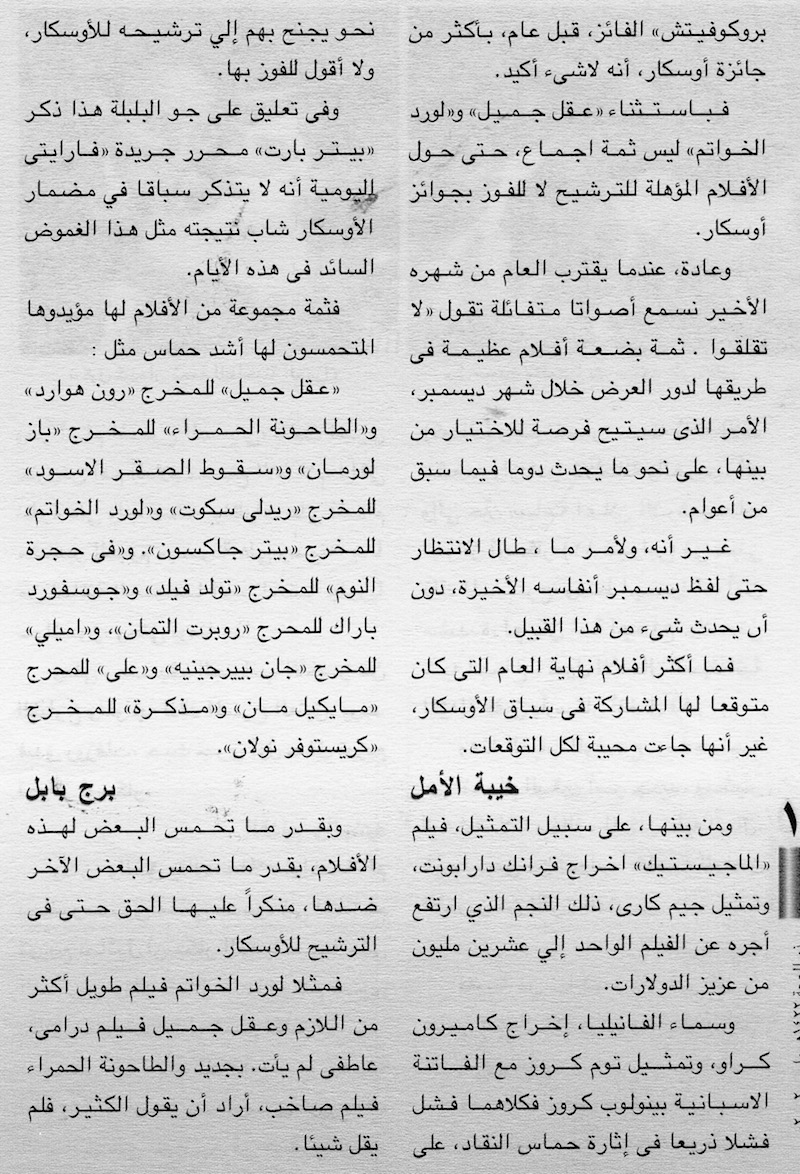 بروكوفيتش» الفائز، قبل عام، بأكثر من
جائزة أوسكار، أنه لاشىء أكيد.
فباستثناء «عقل جميل» و«لورد
الخواتم» ليس ثمة اجماع، حتى حول
الأفلام المؤهلة للترشيح لا للفوز بجوائز
أوسكار.
وعادة، عندما يقترب العام من شهره
الأخير نسمع أصواتا متفائلة تقول «لا
تقلقوا . ثمة بضعة أفلام عظيمة فى
طريقها لدور العرض خلال شهر ديسمبر،
الأمر الذى سيتيح فرصة للاختيار من
بينها، على نحو ما يحدث دوما فيما سبق
من أعوام.
غير أنه، ولأمر ما ، طال الانتظار
حتى لفظ ديسمبر أنفاسه الأخيرة، دون
أن يحدث شىء من هذا القبيل.
فما أكثر أفلام نهاية العام التى كان
متوقعا لها المشاركة فى سباق الأوسكار،
غير أنها جاءت محيبة لكل التوقعات.
خيبة الأمل
ومن بينها، على سبيل التمثيل، فيلم
«الماجيستيك» اخراج فرانك دارابونت،
وتمثيل جيم كارى، ذلك النجم الذي ارتفع
أجره عن الفيلم الواحد إلي عشرين مليون
من عزيز الدولارات.
وسماء الفانيليا، إخراج كاميرون
كراو، وتمثيل توم كروز مع الفاتنة
الاسبانية بينولوب كروز فكلاهما فشل
فشلا ذريعا فى إثارة حماس النقاد، على
نحو يجنح بهم إلي ترشيحه للأوسكار،
ولا أقول للفوز بها.
وفى تعليق على جو البلبلة هذا ذكر
«بيتر بارت» محرر جريدة «فارايتى
اليومية أنه لا يتذكر سباقا في مضمار
الأوسكار شاب نتيجته مثل هذا الغموض
السائد فى هذه الأيام.
فثمة مجموعة من الأفلام لها مؤيدوها
المتحمسون لها أشد حماس مثل :
«عقل جميل» للمخرج «رون هوارد»
و«الطاحونة الحمراء» للمخرج «باز
لورمان» و«سقوط الصقر الاسود»
للمخرج «ريدلى سكوت» و«لورد الخواتم»
للمخرج «بيتر جاكسون». و«فى حجرة
النوم» للمخرج «تولد فيلد» و«جوسفورد
باراك للمحرج «روبرت التمان»، و«اميلي»
للمخرج «جان بييرجينيه» و«على» للمحرج
«مايكيل مان» و«مذكرة» للمخرج
«كريستوفر نولان».
برج بابل
وبقدر ما تحمس البعض لهذه
الأفلام، بقدر ما تحمس البعض الآخر
ضدها، منكراً عليها الحق حتى فى
الترشيح للأوسكار.
فمثلا لورد الخواتم فيلم طويل أكثر
من اللازم وعقل جميل فيلم درامى،
عاطفى لم يأت. بجديد والطاحونة الحمراء
فيلم صاخب، أراد أن يقول الكثير، فلم
يقل شيئا.